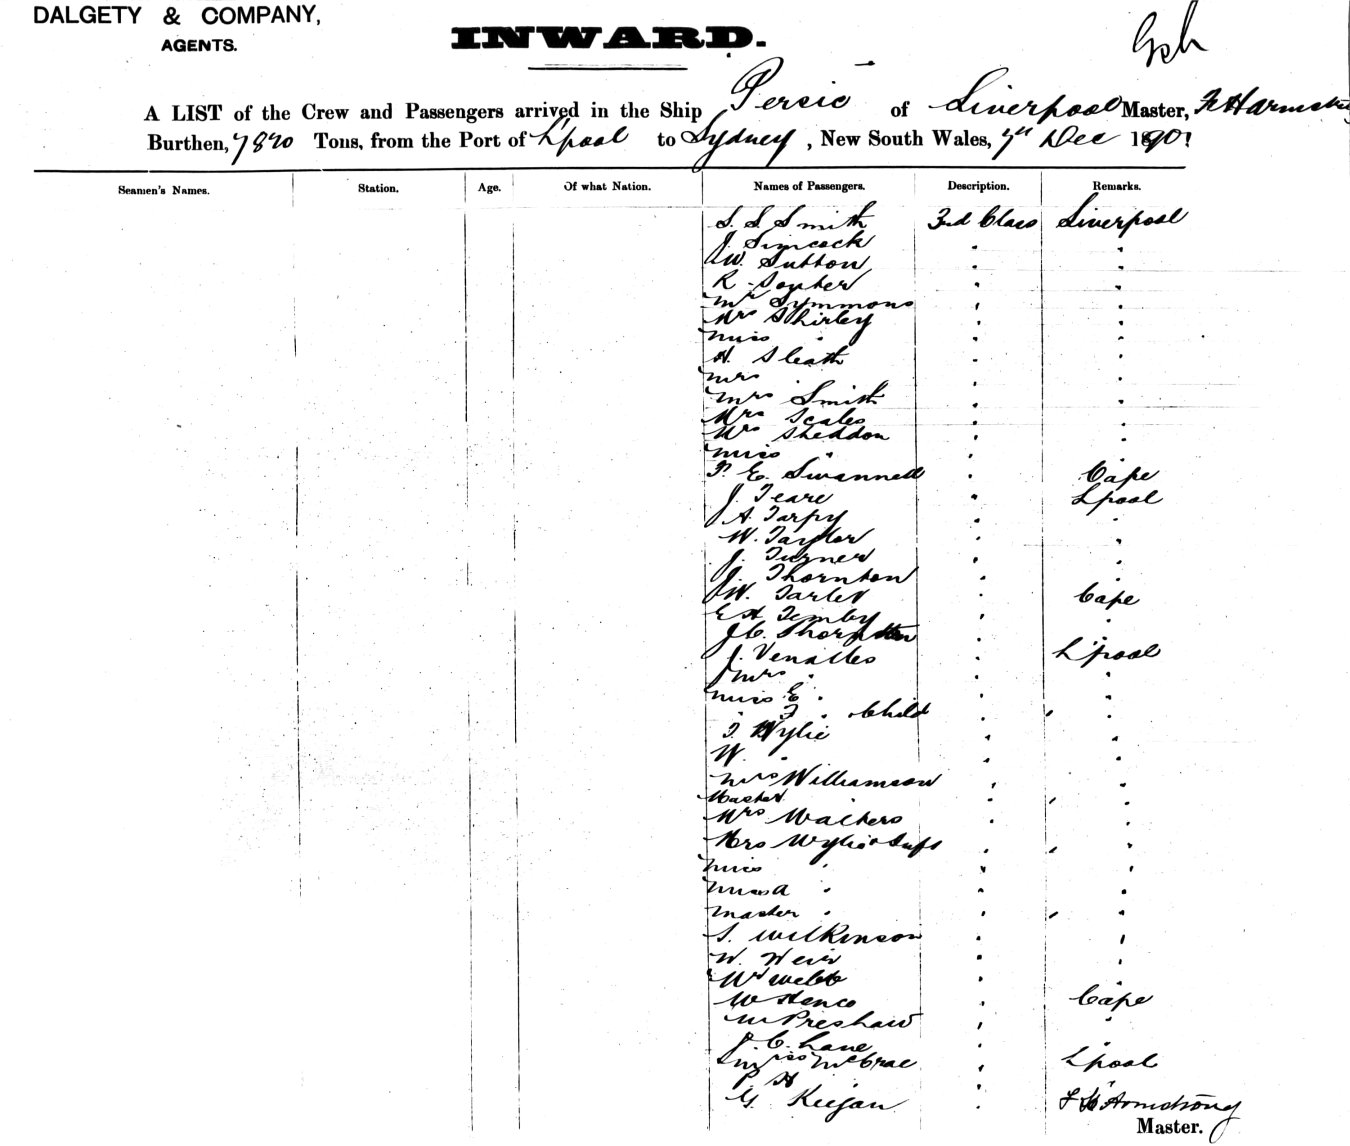 DALGETY & COMPANY,
AGENTS.
INWARD.
A LIST of the Crew and Passengers arrived in the Ship Persic of Liverpool Master,
Burthen, 7820 Tons, from the Port of L'pool to Sydney, New South Wales, 7th Dec 1901
Seamen's Names. Station. Age. Of what Nation. Names of Passengers. Description. Remarks.
S. S. Smith 3rd Class Liverpool
J. Simcock " "
W. Sutton " "
R. Souter " "
Mr Symmons " "
Mrs Shirley " "
Miss " " "
H. Sleath " "
Mrs " " "
Mrs Smith " "
Mrs Scales " "
Mrs Sheddon " "
Miss " " "
E. Swannell " Cape
J. Teare " Lpool
A. Tarpy " "
W. Taylor " "
J. Turner " "
J. Thornton " "
W. " Cape
E A Temby " "
J. C. " "
J. Venables " L'pool
Mrs " " "
Miss E. " " "
" " Child " "
Wylie " "
W. " " "
Mrs Williamson " "
Master " " "
Mrs Walters " "
Mrs Wylie & Inft " "
Miss " " "
Miss A " " "
Master " " "
S. Wilkinson " "
W. Weir " "
Webb " "
W " Cape
Preshaw " "
J. C. Lane " "
Miss McCrae " Lpool
G. Keegan " F H Armstrong
Master.